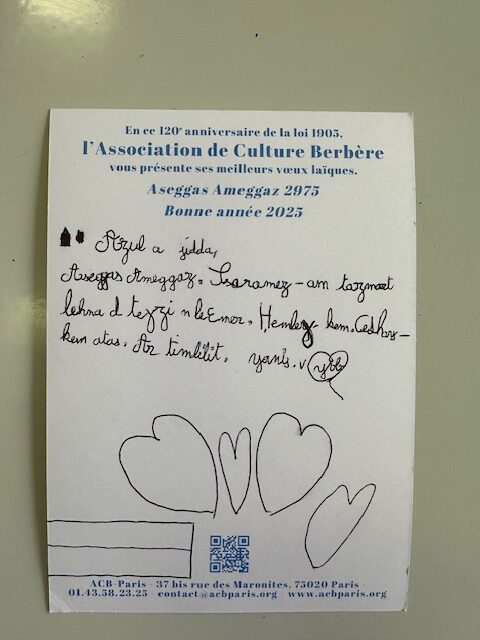 En ce 120e anniversaire de la loi 1905,
l'Association de Culture Berbère
vous présente ses meilleurs vœux laïques.
Aseggas Ameggaz 2975
Bonne année 2025
Azul a jidda,
Aseggas Ameggaz. Ssarameɣ-am tazmert
lehna d teɣzi n leɛmer. Hemleɣ-kem. Cedhaɣ-
kem atas. Ar timlilit. yanis.
ACB-Paris - 37 bis rue des Maronites, 75020 Paris -
01.43.58.23.25 - contact@acbparis.org - www.acbparis.org